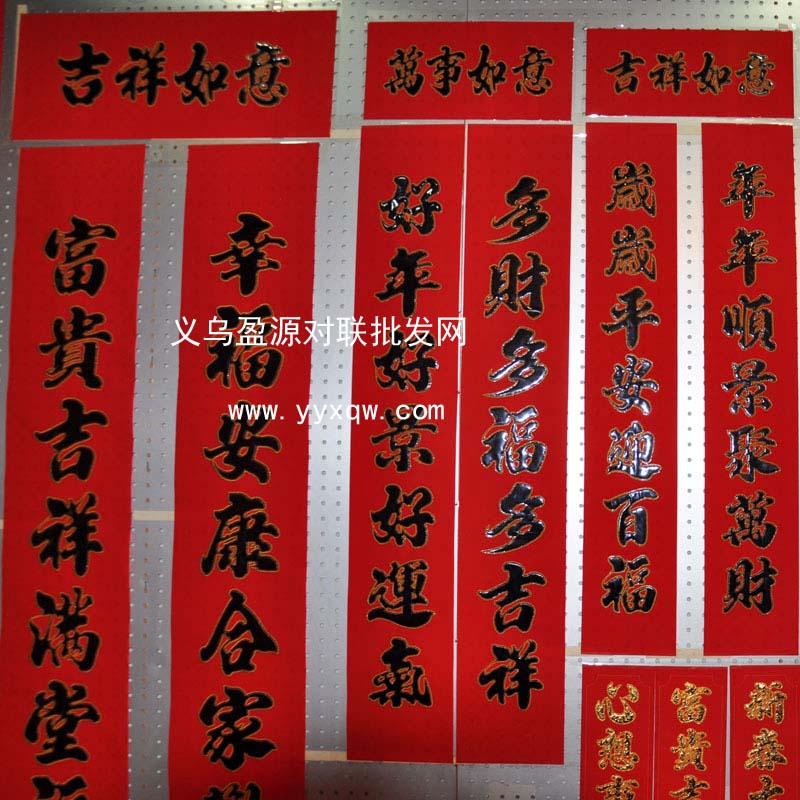 吉祥如意
萬事如意
吉祥如意
富貴吉祥满堂
幸福安康合家
好年好景好運氣
多財多福多吉祥
歲歲平安迎百福
年年順景聚萬財
义乌盈源对联批发网
www.yyxqw.com
心想事
富貴吉
新春